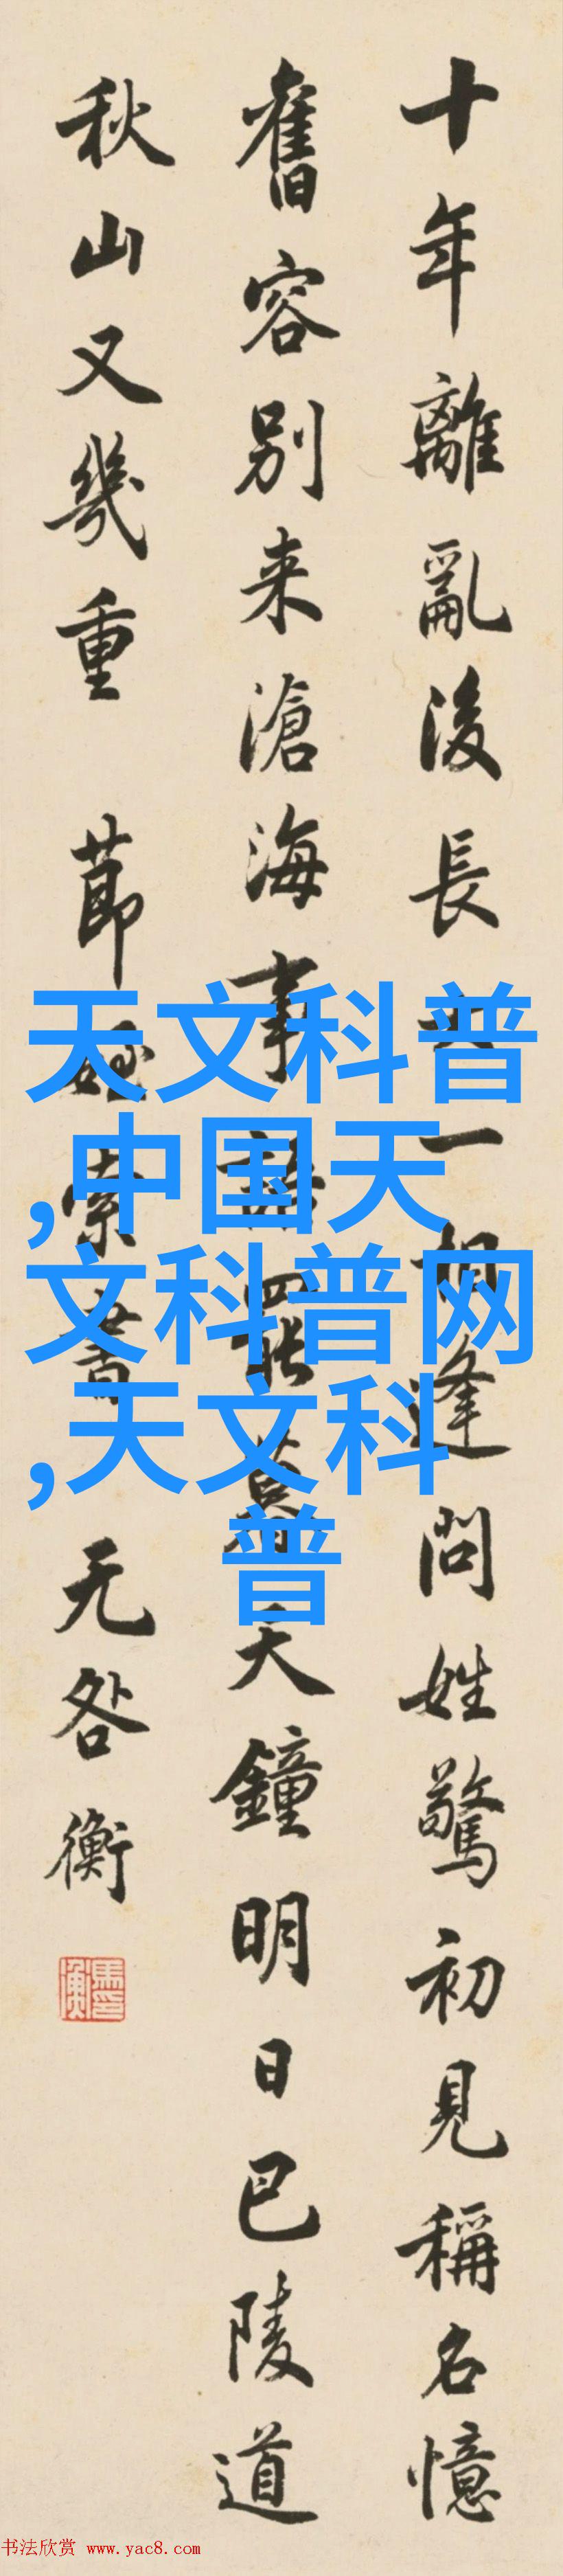 十年離亂後長大一相逢問姓驚初見稱名憶
舊容別来滄海事語罷暮天鐘明日巴陵道
秋山又幾重 莭姪索書 无咎衡
天文科普
,中国天
文科普网
,天文科
普
书法欣赏 www.yac8.com